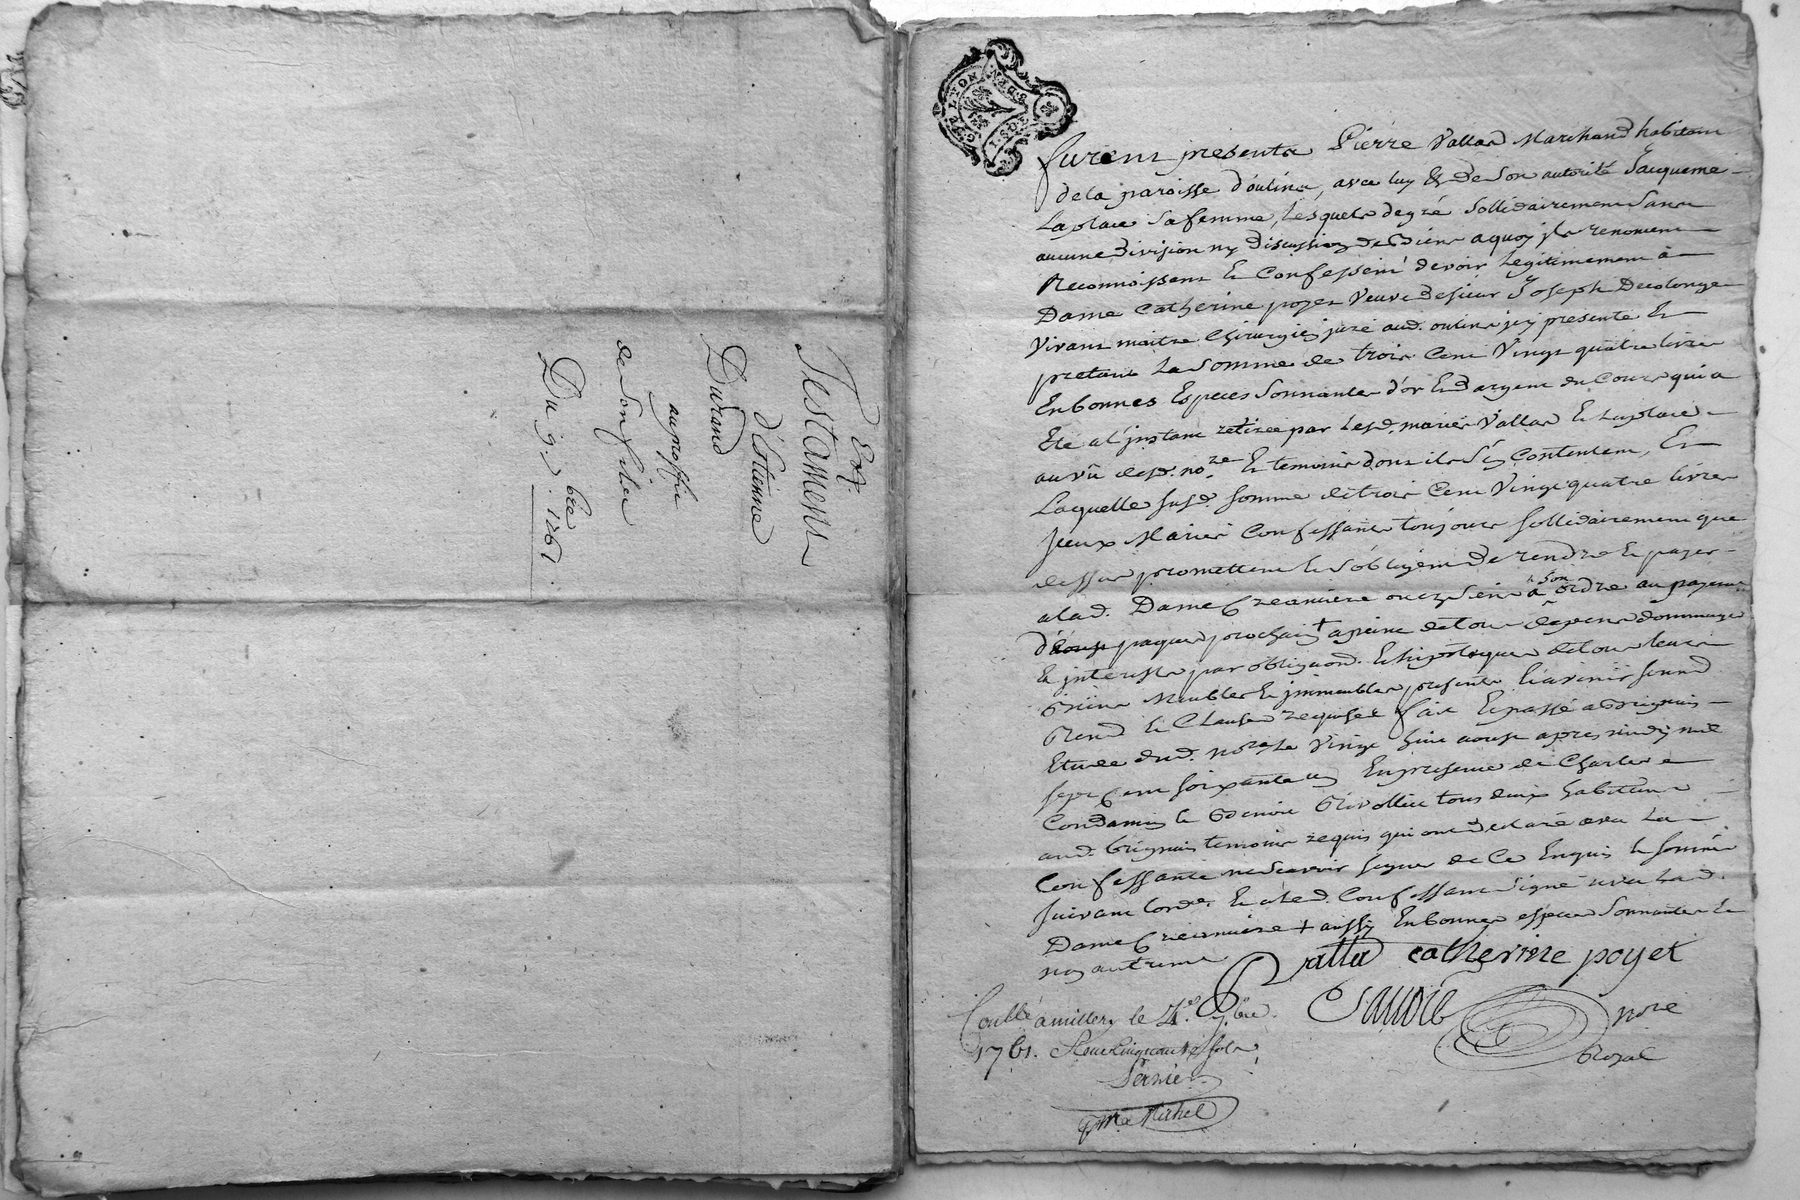 Ext.
Testament
d'Estienne
Durand
au proffit
de son fils
Du 9.e 8bre 1761
GEN. LYON
2. SOLS
furent presents Pierre Vallas Marchand habitant
de la paroisse d'oulins, avec luy & de son autorité Jacqueme
Laplace sa femme, Lesquels de gré sollidairement sans
aucune division ny discussion de Biens a quoy jls renoncent
Reconnoissent et Confessent devoir Legitimement à
Dame Catherine poyet Veuve de sieur Joseph Decolonge
Vivant maitre Chirurgien juré aud. oulins jcy presente et
pretant La somme de trois Cent Vingt quatre livres
En bonnes Especes Sonnantes d'or et d'argent du Cours qui a
Eté a l'jnstant retirée par Lesd. mariés Vallas et Laplace
au vû desd. no.re Et temoins dont ils s'en Contentent, Et
Laquelle susd. somme de trois Cent Vingt quatre livres
jceux Mariés Confessants toujours sollidairement que
dessus promettent et s'obligent de rendre et payer
a lad. Dame Creanciere ou a son ordre au payement
d' paques prochain + a peine de tous depens dommages
et jnterests par obligaond. et hipoteque de tous leurs
Biens Meubles et jmmeubles presents et avenir
Renond. et Clauses requises fait et passé a Brignais
Etude dud. nore Le Vingt huit aoust apres midy mil
sept Cent soixante un En presence de Charles
Condamin et Benoit Rivollier tous deux habitans
aud. Brignais temoins requis qui ont declaré avec La
Confessante ne sçavoir signer de Ce Enquis et sommés
suivant l'orde. et a led. Confessant signé avec Lad.
Dame Creanciere + aussy En bonnes especes Sonnantes et
non autrement
Vallas catherine poyet
Sauvie nore
Royal
Conllé a millery le 4.e 7bre
1761. Reçu Cinquante sols
Pernier
Michel